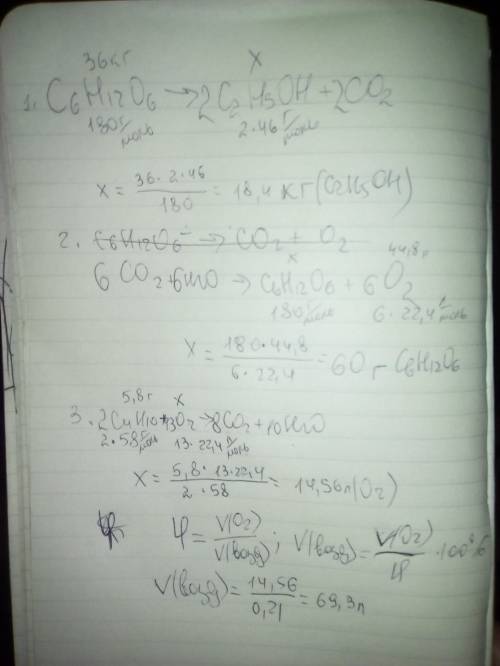 36кг X
1. C6H12O6 → 2C2H5OH + 2CO2
180 г/моль 2·46 г/моль
x = 36·2·46 / 180 = 18,4 кг (C2H5OH)
2. C6H12O6 → CO2 + O2
x 44,8л
6CO2 + 6H2O → C6H12O6 + 6O2
180 г/моль 6·22,4 л/моль
x = 180·44,8 / 6·22,4 = 60 г C6H12O6
5,8г x
3. 2C4H10 + 13O2 → 8CO2 + 10H2O
2·58 г/моль 13·22,4 л/моль
x = 5,8·13·22,4 / 2·58 = 14,56 л (O2)
φ = V(O2) / V(возд) ; V(возд) = V(O2) / φ · 100%
V(возд) = 14,56 / 0,21 = 69,3 л